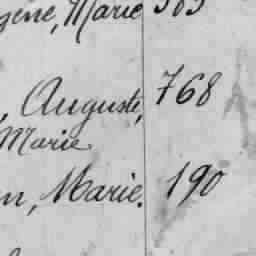 gène, Marie 585
, Auguste, 768
Marie
n, Marie. 190